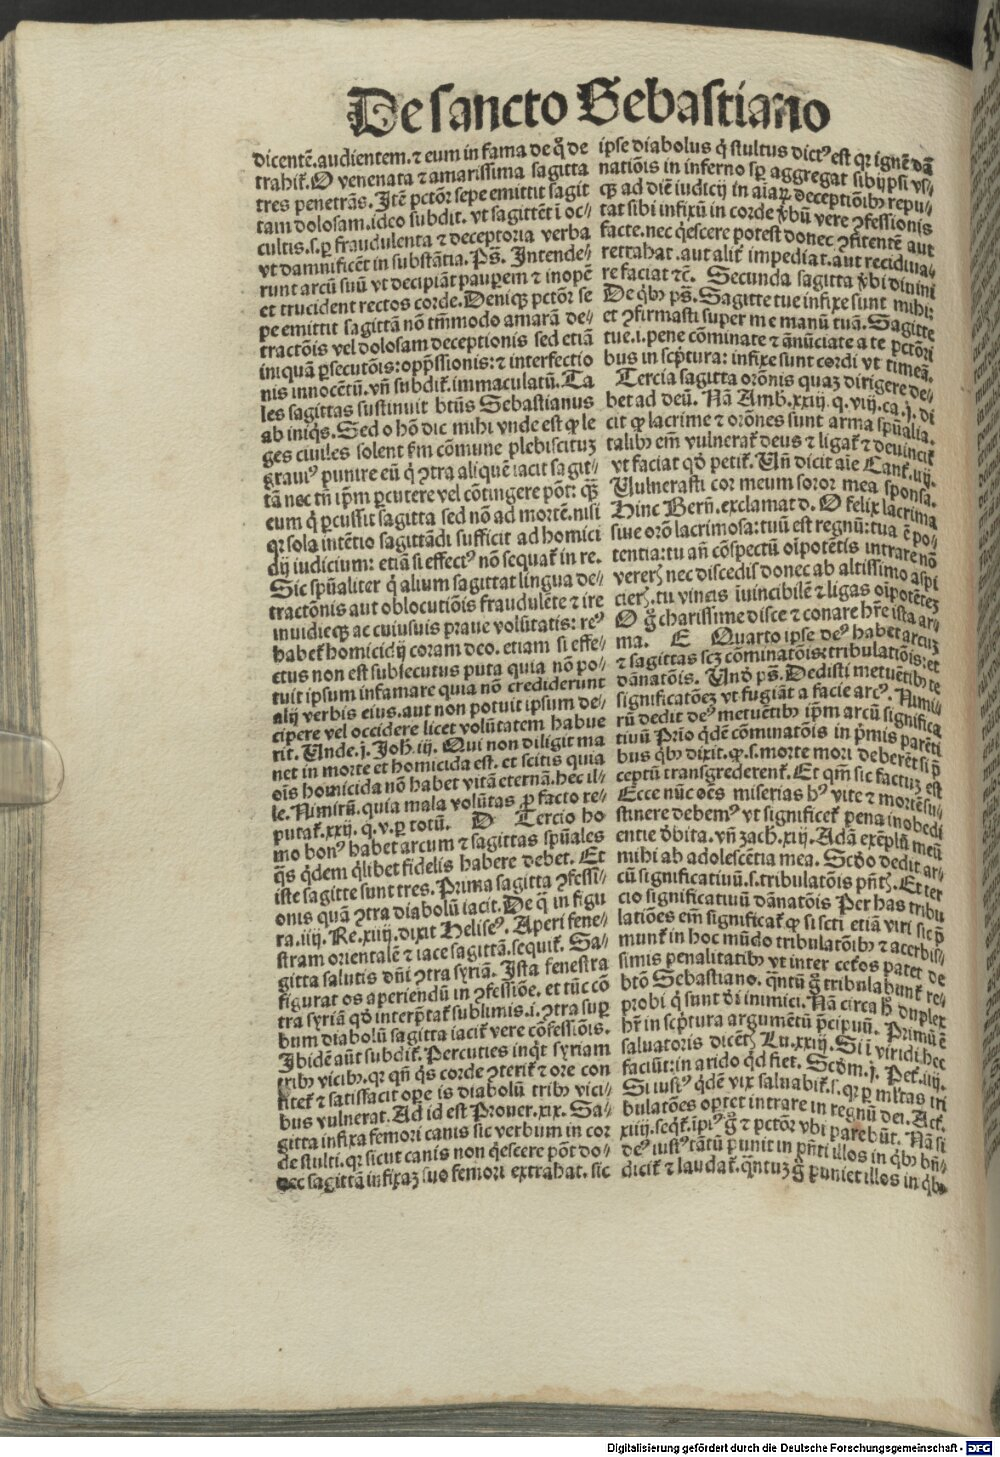 De sancto Sebastiano
dicentē.audientem.⁊ eum in fama de q̄ de
trahit̄.O venenata ⁊ amarissima sagitta
tres penetrās. Itē pctōr sepe emittit sagit
tam dolosam.ideo subdit. vt sagittēt ī oc⸗
cultis.s.ꝑ fraudulenta ⁊ deceptoria verba
vt damnificēt in substātia.Ps̄. Intende⸗
runt arcū suū vt decipiāt pauꝑem ⁊ inopē
et trucident rectos corde.Deniqꝫ pctōr se
pe emittit sagittā nō tm̄modo amarā de⸗
tractōis vel dolosam deceptionis sed etiā
iniquā ꝑsecutōis:opp̄ssionis:⁊ interfectio
nis innocētū.vn̄ subdit̄.immaculatū.Ta
les sagittas sustinuit btūs Sebastianus
ab iniqs̄.Sed o hō dic mihi vnde est ꝙ le
ges ciuiles solent ẜm cōmune plebiscituꝫ
grauiꝰ punire eū q̄ ꝯtra aliquē iacit sagit⸗
tā nec tn̄ ip̄m ꝑcutere vel cōtingere pōt: qꝫ̄
eum q̄ ꝑcussit sagitta sed nō ad mortē.nisi
qꝛ sola intētio sagittādi sufficit ad homici
dij iudicium: etiā si effectꝰ nō sequat̄ in re.
Sic spūaliter q̄ alium sagittat lingua de⸗
tractōnis aut oblocutiōis fraudulēte ⁊ ire
inuidieqꝫ ac cuiusuis praue volūtatis: reꝰ
habet̄ homicidij coram deo. etiam si effe⸗
ctus non est subsecutus puta quia nō po⸗
tuit ipsum infamare quia nō crediderunt
alij verbis eius.aut non potuit ipsum de⸗
cipere vel occidere licet volūtatem habue
rit. Unde.j. Joh̄. iij. Qui non diligit ma
net in morte et homicida est. et scitis quia
oīs homicida nō habet vitā eternā.hec il⸗
le.Nimirū.quia mala volūtas ꝓ facto re⸗
putat̄.xxij. q. v.ꝑ totū. D Tercio ho
mo bonꝰ habet arcum ⁊ sagittas spūales
qs̄ qdem̄ qlibet fidelis habere debet. Et
iste sagitte sunt tres. Prima sagitta ꝯfessi⸗
onis quā ꝯtra diabolū iacit.De q̄ in figu
ra. iiij. Re.xiij.dixit Heliseꝰ. Aperi fene⸗
stram orientalē ⁊ iace sagittā.sequit̄. Sa⸗
gitta salutis dn̄i ꝯtra syriā. Ista fenestra
figurat os aperiendū in ꝯfessiōe. et tūc cō
tra syriā qd̄ interp̄tat̄ sublimis.i.ꝯtra suꝑ
bum diabolū sagitta iacit̄ vere cōfessiōis.
Ibidē aūt subdit̄.Percuties inqt̄ syriam
tribꝫ vicibꝫ.qꝛ qn̄ qs̄ corde ꝯterit̄ ⁊ ore con
fitet̄ ⁊ satisfacit oꝑe is diabolū tribꝫ vici⸗
bus vulnerat. Ad id est Prouer.xix. Sa⸗
gitta infixa femori canis sic verbum in cor
de stulti. qꝛ sicut canis non qēscere pōt do⸗
nec sagittā infixaꝫ suo femori extrahat. sic
ipse diabolus q̄ stultus dictꝰ est qꝛ ignē dā
natiōis in inferno sꝑ aggregat sibijpsi vs⸗
qꝫ ad diē iudicij in aīaꝝ deceptiōibꝫ repu⸗
tat sibi infixū in corde v̄bū vere ꝯfessionis
facte.nec qēscere potest donec ꝯfitentē aut
retrahat.aut alit̄ impediat.aut recidiua⸗
re faciat ⁊c̄. Secunda sagitta v̄bi diuini
De qbꝫ̄ ps̄.Sagitte tue infixe sunt mihi:
et ꝯfirmasti super me manū tuā.Sagitte
tue.i.pene cōminate ⁊ ānūciate a te pctōri
bus in scp̄tura: infixe sunt cordi vt timeā.
Tercia sagitta orōnis quaꝫ dirigere de⸗
bet ad deū. Nā Amb.xxiij. q. viij. ca. j. di
cit ꝙ lacrime ⁊ orōnes sunt arma spūalia.
talibꝫ em̄ vulnerat̄ deus ⁊ ligat̄ ⁊ deuincit̄
vt faciat qd̄ petit̄. Un̄ dicit aīe Cant̄. iiij.
Vulnerasti cor meum soror mea sponsa.
Hinc Bern̄.exclamat d. O felix lacrima
siue orō lacrimosa:tuū est regnū:tua ē po⸗
tentia:tu an̄ cōspectū oīpotētis intrare nō
vereꝝ nec discedis donec ab altissimo aspi
cieꝝ.tu vincis īuincibilē ⁊ ligas oīpotēteꝫ
O g̊ charissime disce ⁊ conare hr̄e ista ar⸗
ma. E Quarto ipse deꝰ habet arcuꝫ
⁊ sagittas scꝫ cōminatōis:tribulatiōis:et
dānatōis. Und̄ ps̄.Dedisti metuētibꝫ te
significatōeꝫ vt fugiāt a facie arcꝰ. Nimi⸗
rū dedit deꝰ metuētibꝫ ip̄m arcū significa
tiuū Prīo qdē̄ cōminatōis in p̄mis parēti
bus qbꝫ̄ dixit.ꝙ.s.morte mori deberēt si p̄
ceptū transgrederent̄. Et qm̄ sic factuꝫ est
Ecce nūc oēs miserias hꝰ vite ⁊ mortē su⸗
stinere debemꝰ vt significet̄ pena inobedi
entie d̄bita. vn̄ zach.xiij. Adā exēplū meū
mihi ab adolescētia mea. Scd̄o dedit ar⸗
cū significatiuū.s.tribulatōis pn̄tꝫ. Et ter
cio significatiuū dānatōis Per has tribu
latiōes em̄ significat̄ ꝙ si scti etiā viri sic p̄
munt̄ in hoc mūdo tribulatōibꝫ ⁊ acerbis⸗
simis penalitatibꝫ vt inter ceteros patet de
btō Sebastiano. qn̄tū g̊ tribulabunt̄ re⸗
probi q̄ sunt d̄i inimici. Nā circa h̄ duplex
hr̄ in scp̄tura argumētū p̄cipuū. Primū ē
saluatoris dicētꝫ Lu.xxiij. Si ī viridi hec
faciūt:in arido qd̄ fiet. Scd̄m.j. Pet̄.iiij.
Si iustꝰ qdē̄ vix saluabit̄.s.qꝛ ꝑ ml̄tas tri
bulatōes oꝑtet intrare in regnū dei. Act̄.
xiiij.seqt̄.īpiꝰ g̊ ⁊ pctōr vbi parebūt. Nā si
deꝰ iustꝰ tātū punit in pn̄ti illos in qbꝫ̄ bn̄⸗
dicit̄ ⁊ laudat̄.qn̄tuꝫ g̊ puniet illos in qbꝫ̄
Digitalisierung gefördert durch die Deutsche Forschungsgemeinschaft - DFG